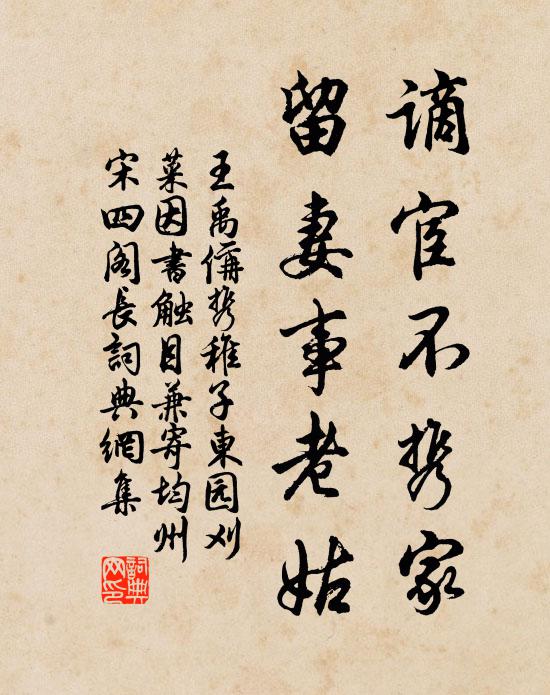 谪宦不携家
留妻事老姑
王禹偁携稚子东园刈
菜因书触目兼寄均州
宋四阁长词典網集
詞典
网印